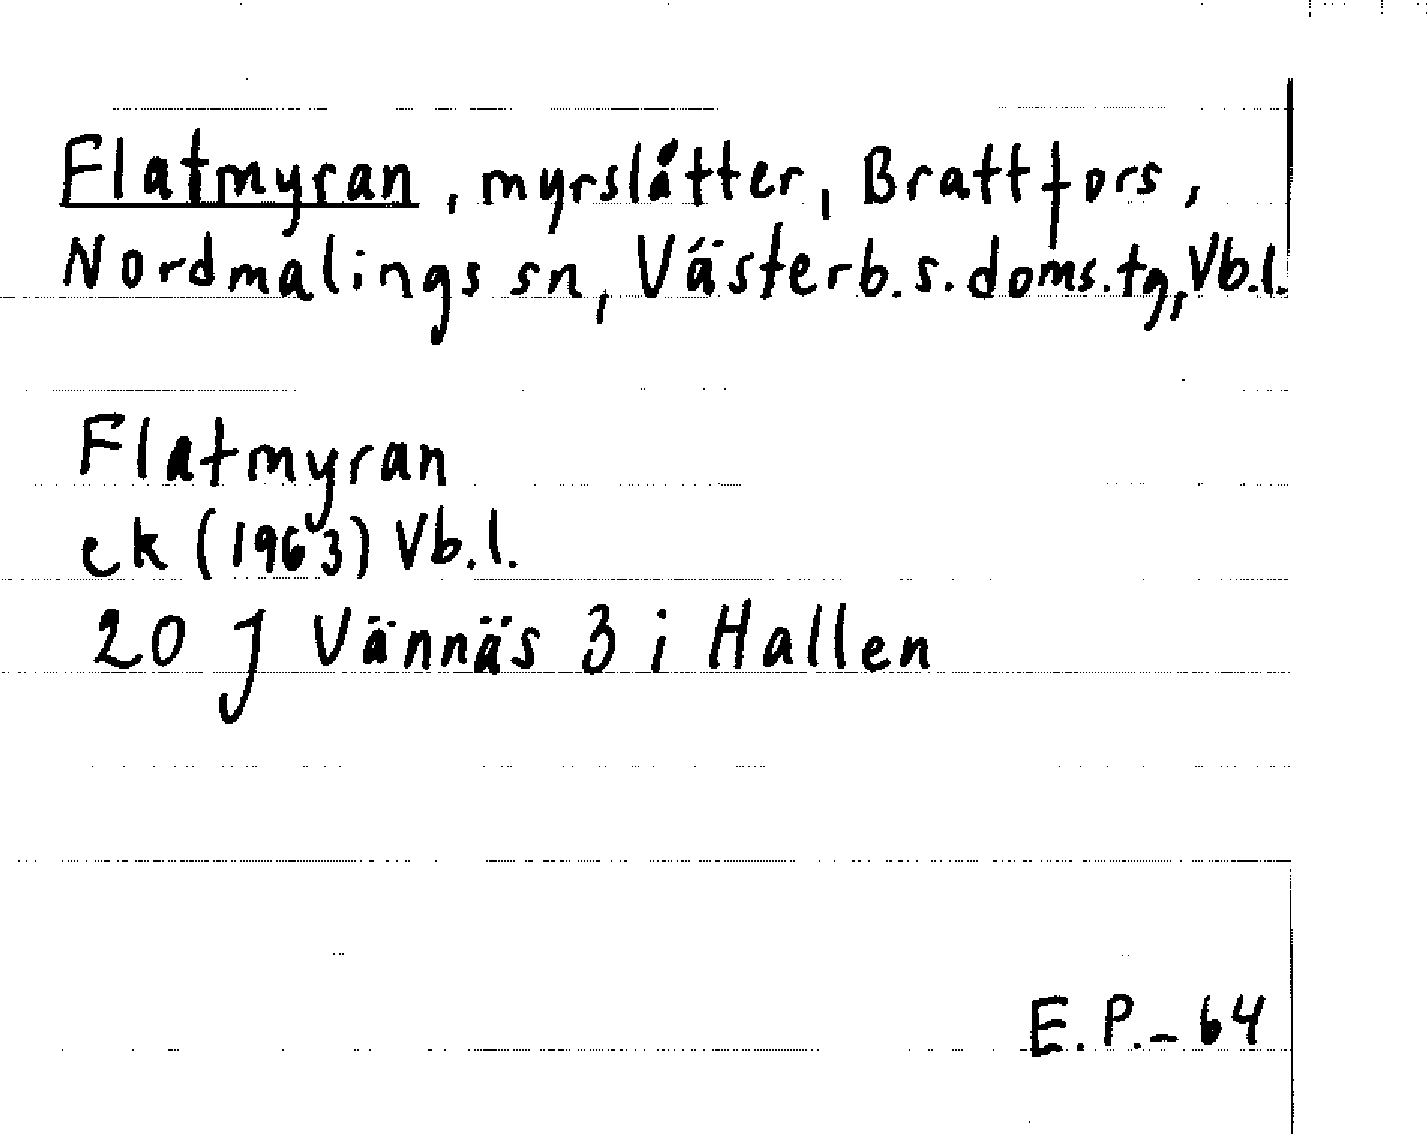 Flatmyran, myrslåtter, Brattfors,
Nordmalings sn, Västerb.s.doms.tg, Vb.l.
Flatmyran
ek (1963) Vb.l.
20 J Vännäs 3 i Hallen
E.P.-64